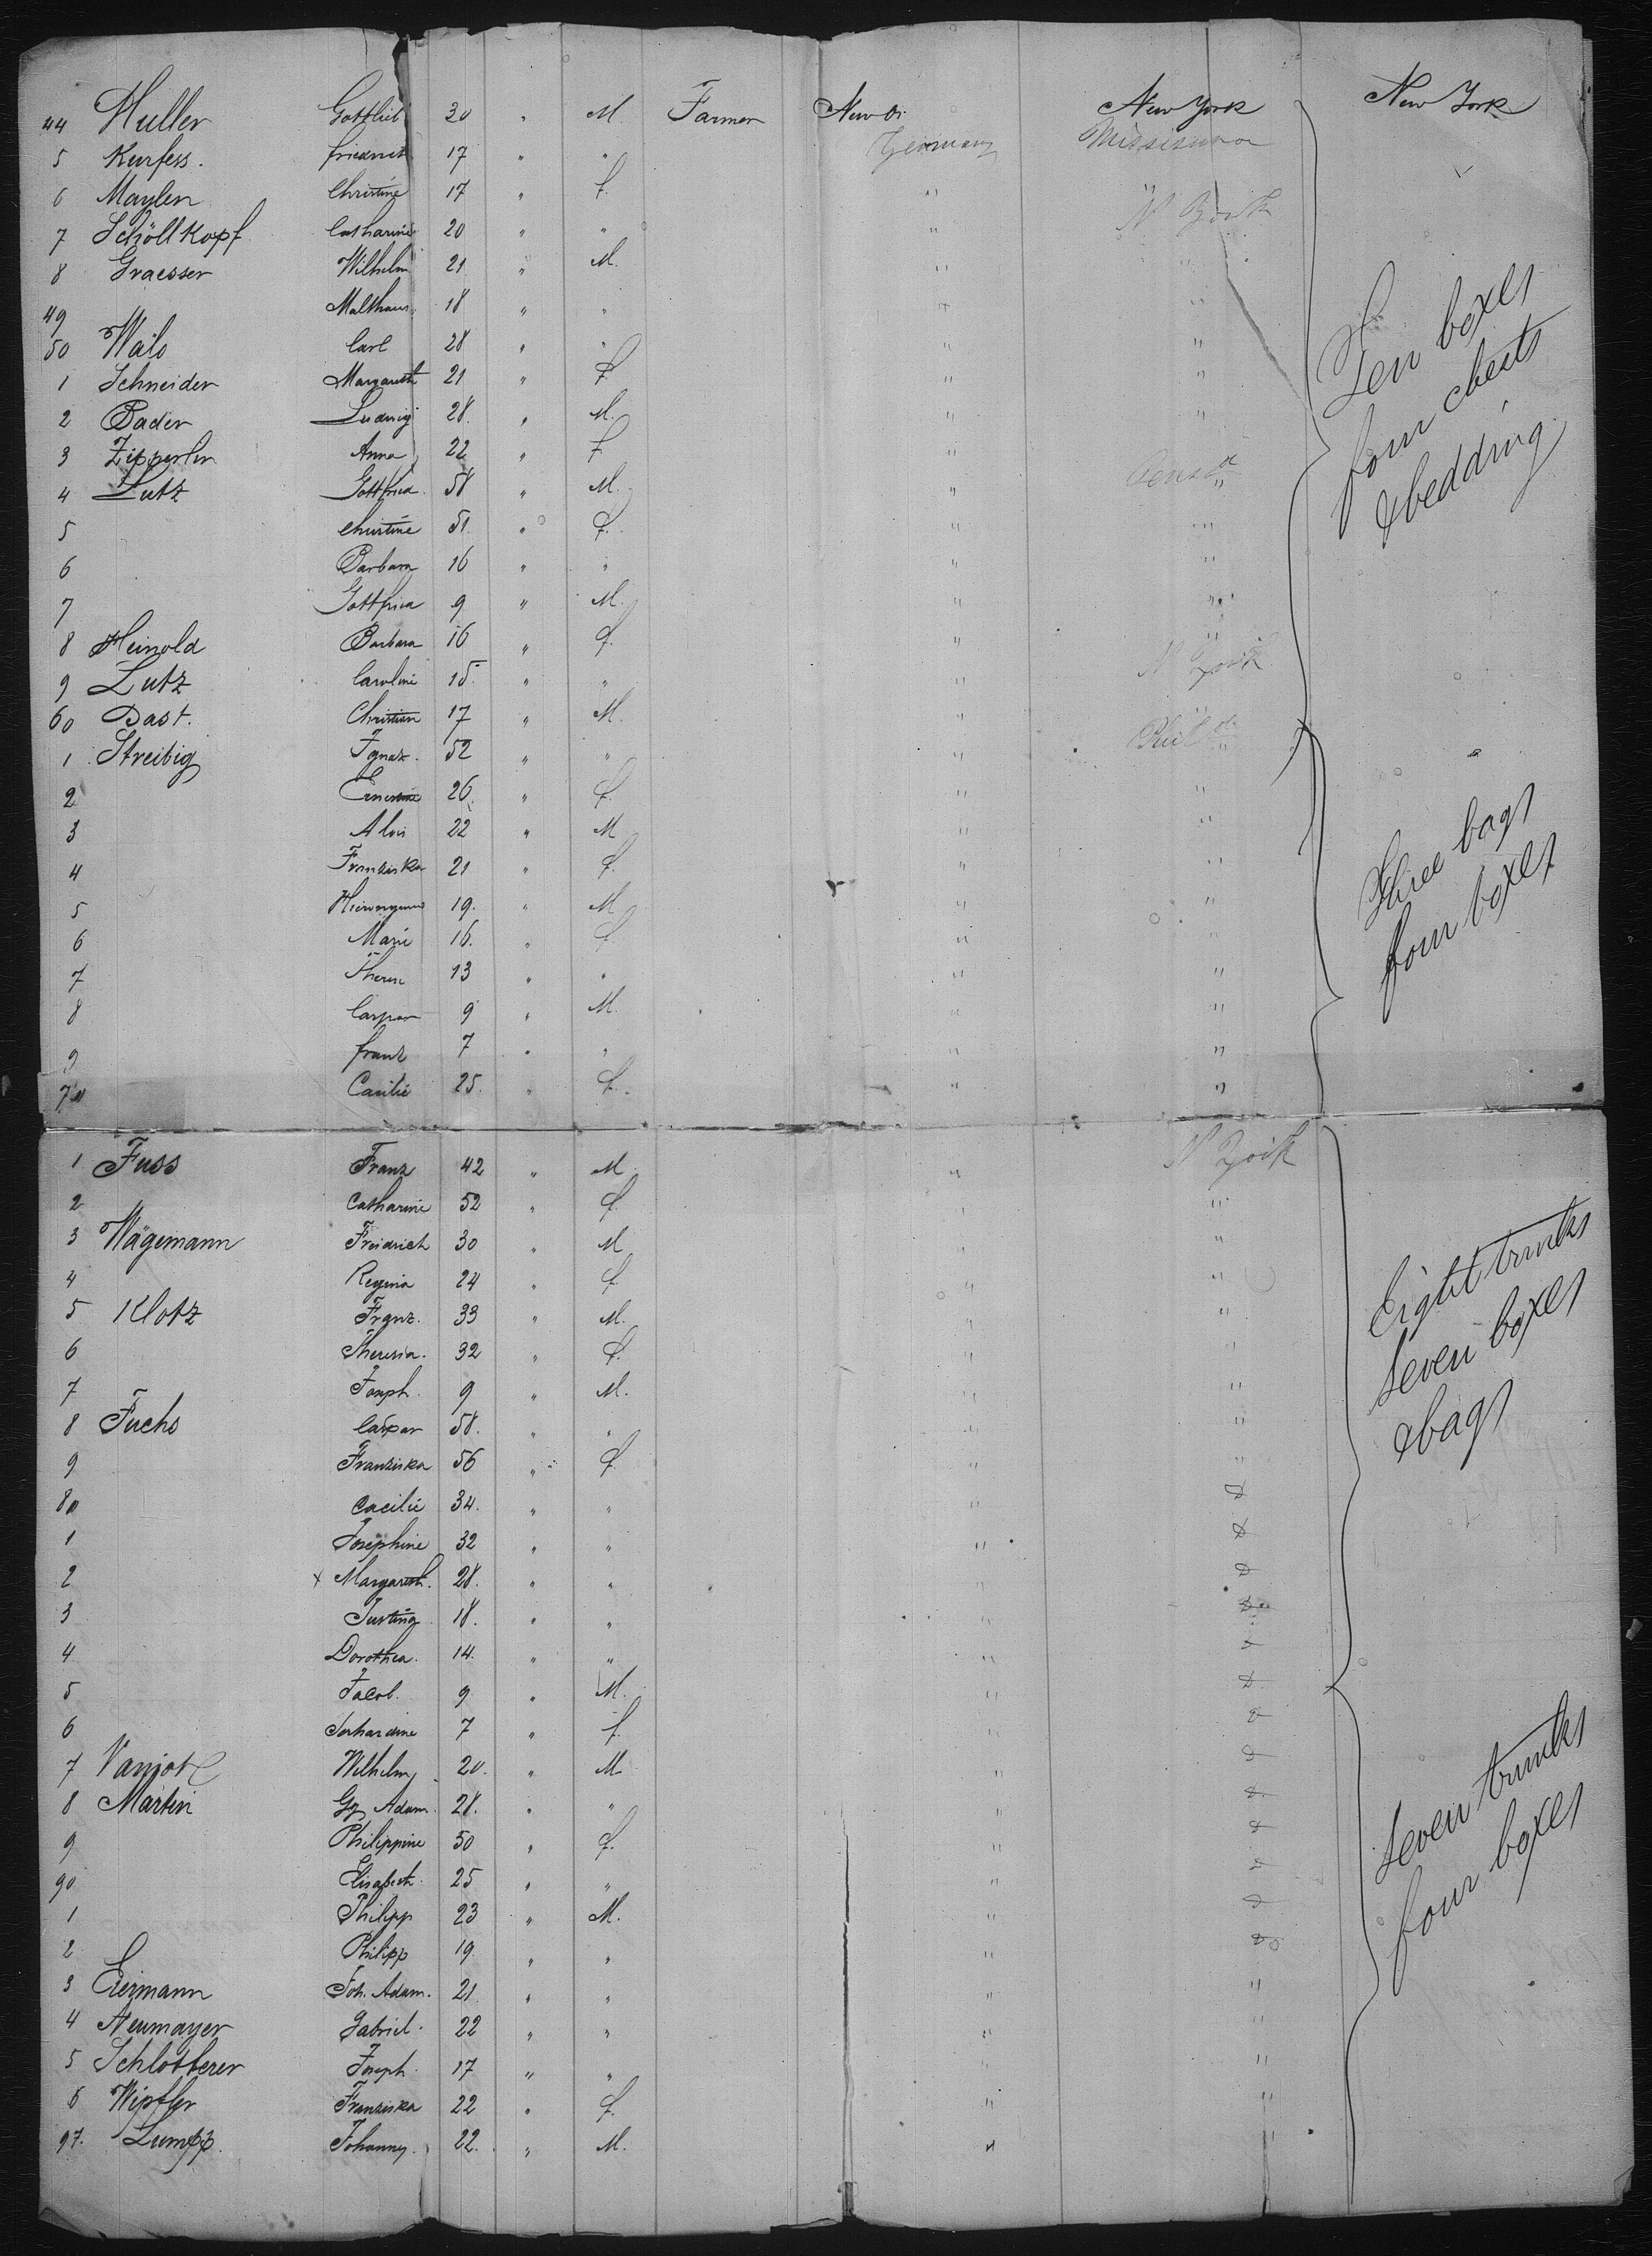 44 Muller Gottlieb 30 " M. Farmer New York New York
5 Kurfess. friedrich 17 " " Germany
6 Maylen Christine 17 " f. " "
7 Schöllkopf Catharine 20 " " " N York
8 Graesser Wilhelm 21 " M. " "
49 18 " " " "
50 Carl 28 " " " "
1 Schneider Margareth 21 " f " "
2 Bader Ludwig 28. " M. " "
3 Zipperlen Anna 22 " f "
4 Lutz Gottfried 58 " M. " "
5 Christine 51 " f. " "
6 Barbara 16 " " " "
7 Gottfried 9 " M. " "
8 Heinold Barbara 16 " f. " "
9 Lutz Caroline 15. " " " N York
60 Dast. Christian 17 " M. " "
1 Streibig Ignaz. 52 " " " "
2 Ernestine 26. " f. " "
3 Alois 22 " M " "
4 Franziska 21 " f. " "
5 Hieronymus 19. " M " "
6 Marie 16. " f. " "
7 Therese 13 " " " "
8 Caspar 9 " M. " "
9 franz 7 " " " "
70 Cacilie 25. " f. " "
Ten boxes
four chests
& bedding
Three bags
four boxes
1 Fuss Franz 42 " M " N York
2 Catharine 52 " f. " "
3 Wägemann Freidrich 30 " M " "
4 Regina 24 " f. " "
5 Klotz Franz. 33 " M. " "
6 Theresia. 32 " f. " "
7 Joseph. 9 " M. " "
8 Fuchs Caspar 58. " " " "
9 Franziska 56 " f " "
80 Cacilie 34. " " "
1 Josephine 32 " " "
2 x Margareth. 28. " " "
3 Justina 18. " " "
4 Dorothea. 14. " " "
5 Jacob. 9 " M. "
6 7 " f. "
7 Wilhelm 20. " M "
8 Martin Gg Adam. 28. " " "
9 Philippine 50 " f. "
90 Elisabeth. 25 " " "
1 Philipp 23 " M. "
2 Philipp 19. " " "
3 Eiermann Joh. Adam. 21 " " " "
4 Neumayer Gabriel. 22 " " " "
5 Schlotterer Joseph. 17 " " " "
6 Wipfler Franziska 22 " f. " "
97. Lumpp. Johann. 22. " M. " "
Eight trunks
seven boxes
& bags
Seven trunks
four boxes